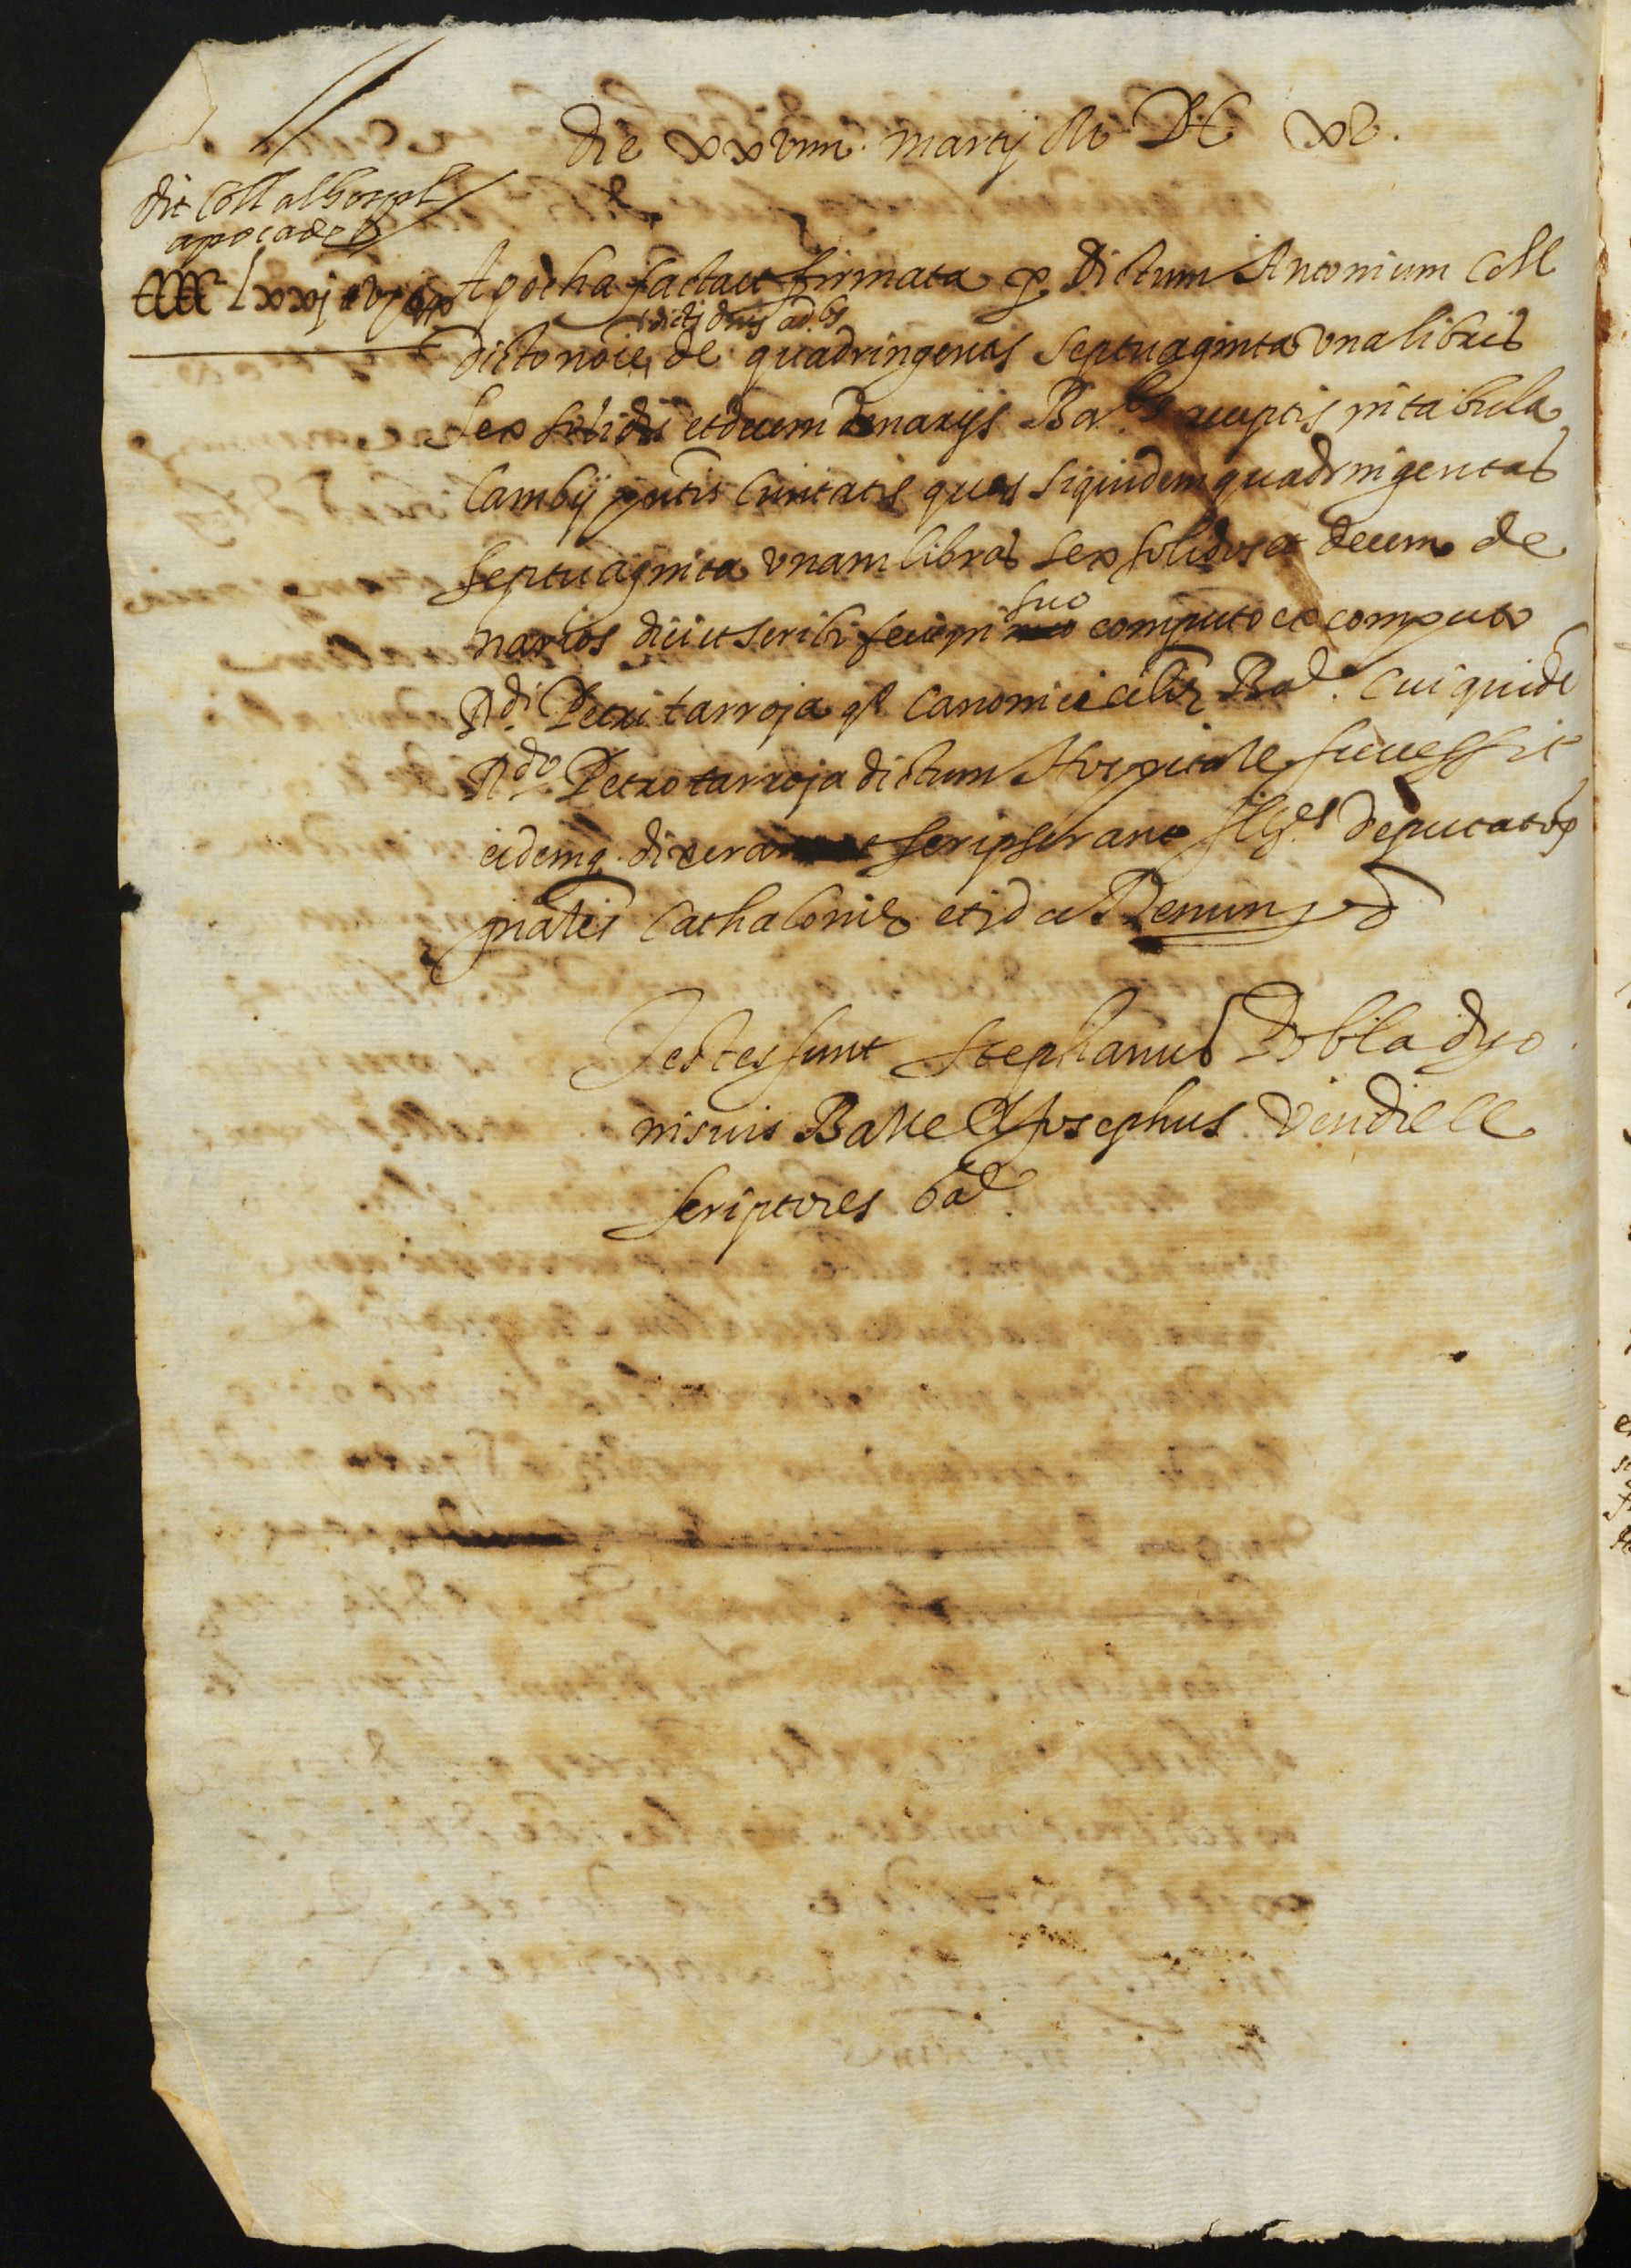 die xxviiii. martij M DC xv.
dit Coll al hospl
apoca de
CCCC lxxj ℔ vj s x
Apocha facta et firmata p. dictum Antonium Coll
dicto noie, de quadringentis septuaginta una libris
dictis dnis ad.bs
sex solidis et decem denarijs Bar. receptis in tabula
Cambij pntis Civitatis quas siquidem quadringentas
septuaginta unam libras sex solidos et decem de
narios dici et scribi feci in suo computo ex computo
Rdi. Petri tarroja qo. Canonici Bar. Cui quidē
Rdo. Petro tarroja dictum Hospitale successit
eidemq. dixerant et scripserant Illes. deputatos
gnales Cathaloniæ et id ceo Renun
Testes sunt Stephanus Pobla dyo
nisius Batlle et Josephus Vendrell
scriptores bar.